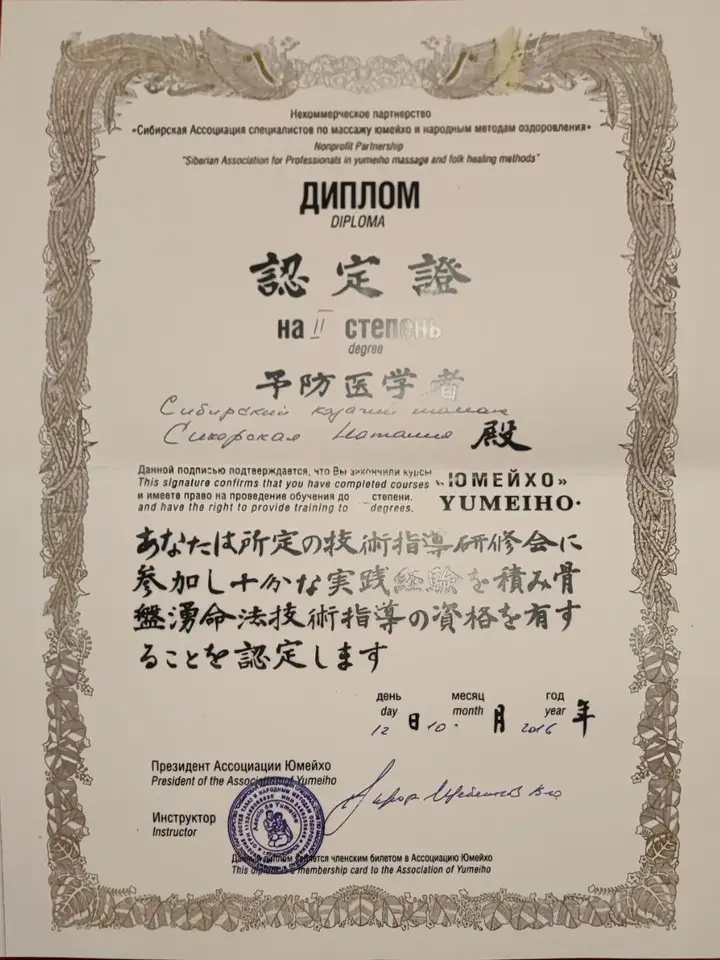 Некоммерческое партнерство
«Сибирская Ассоциация специалистов по массажу юмейхо и народным методам оздоровления»
Nonprofit Partnership
"Siberian Association for Professionals in yumeiho massage and folk healing methods"
ДИПЛОМ
DIPLOMA
認定證
на II степень
degree
予防医学者
Сибирский казачий шаман
Сикорская Наталия 殿
Данной подписью подтверждается, что Вы закончили курсы
This signature confirms that you have completed courses
и имеете право на проведение обучения до степени.
and have the right to provide training to degrees.
«ЮМЕЙХО»
YUMEIHO·
あなたは所定の技術指導研修会に
参加し十分な実践経験を積み骨
盤湧命法技術指導の資格を有す
ることを認定します
день месяц год
day month year
12 日 10 月 2016 年
Президент Ассоциации Юмейхо
President of the Association of Yumeiho
Инструктор
Instructor
Asocio de Yumeiho
Данный диплом является членским билетом в Ассоциацию Юмейхо
This diploma is a membership card to the Association of Yumeiho